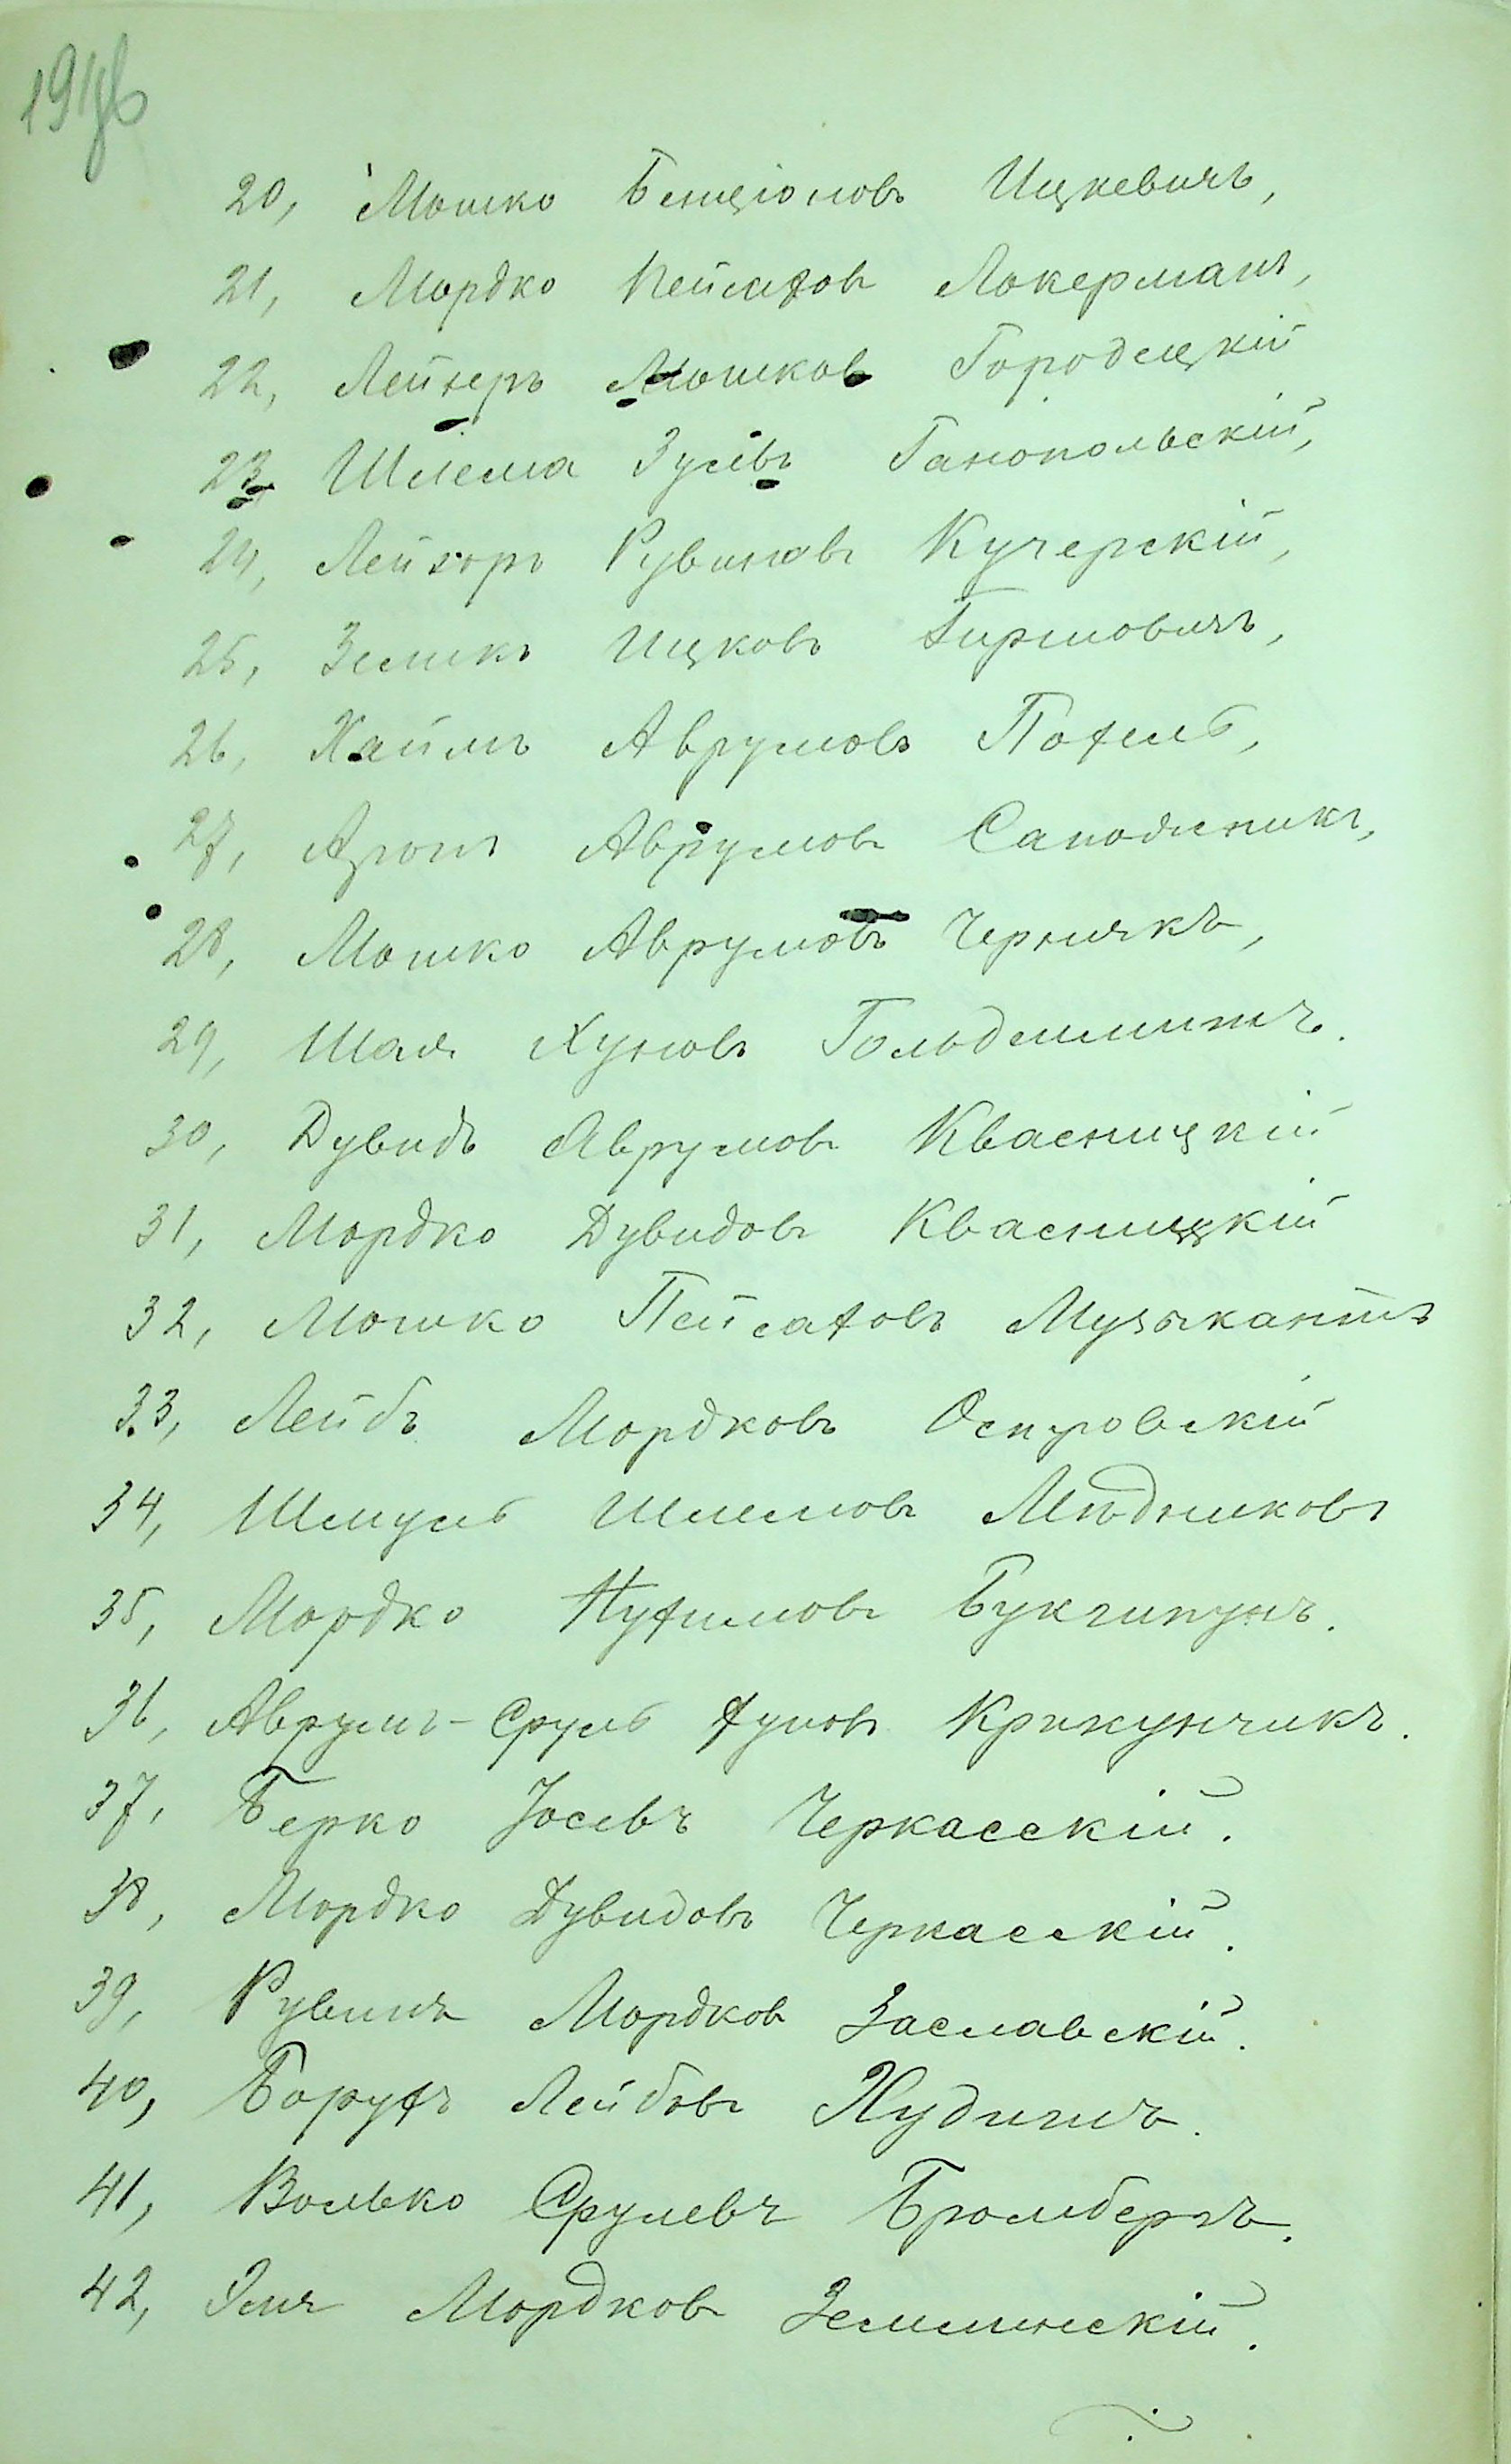 20, Мошко Бенціоновъ Ицкевичъ,
21, Мордко Пейсаховъ Локерманъ,
22, Лейзеръ Мошковъ Городецкій
23, Шлема Зусевъ Ганопольскій,
24, Лейзоръ Рувиновъ Кучерскій,
25, Зеликъ Ицковъ Гиршовичъ,
26, Хаимъ Аврумовъ Похилъ,
27, Аронъ Аврумовъ Саподникъ,
28, Мошко Аврумовъ Чернякъ,
29, Шая Хуновъ Гольдшмитъ.
30, Дувидъ Аврумовъ Квасницкій
31, Мордко Дувидовъ Квасницкій
32, Мошко Пейсаховъ Музыкантъ
33, Лейбъ Мордковъ Островскій
34, Шмуль Шлемовъ Мѣдниковъ
35, Мордко Нухимовъ
36, Аврумъ-Сруль Крикунчикъ.
37, Берко Іосевъ Черкасскій.
38, Мордко Дувидовъ Черкасскій.
39, Рувинъ Мордковъ Заславскій.
40, Борухъ Лейбовъ
41, Волько Срулевъ Бромбергъ.
42, Эля Мордковъ